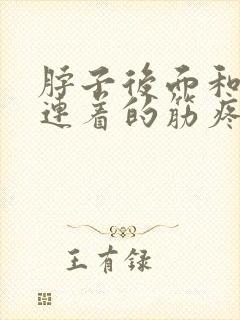 脖子後面和
連着的筋疼
王有録